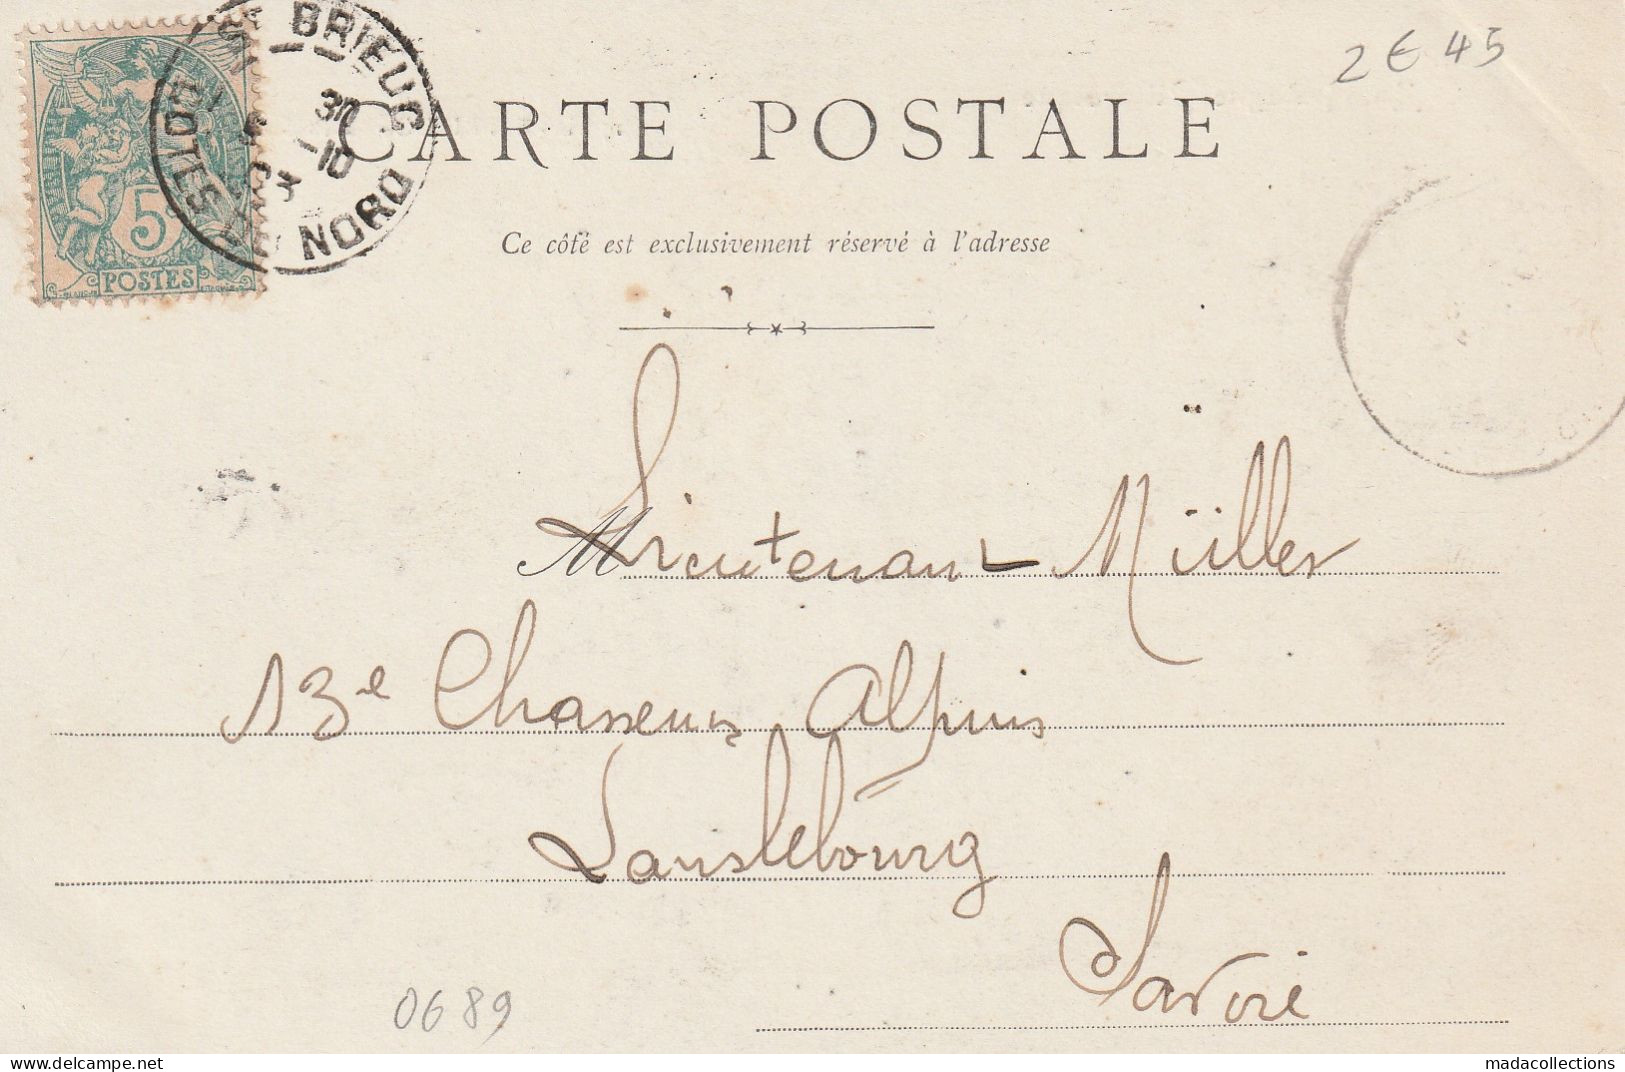 ST BRIEUC
COTES DU NORD
30
-10
5c
POSTES
2€45
CARTE POSTALE
Ce côté est exclusivement réservé à l'adresse
M Lieutenant Müller
13e Chasseurs Alpins
Lanslebourg
Savoie
0689
madacollections